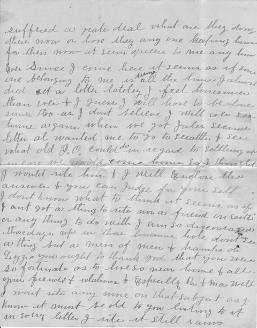 suffered a grate deal what are they doing
there now or how they any one keeping house
for them now it seems queere to me any how
Ever since I come here it seems as if some
one belonging to me is all the time I almost
did not a letter lately I feel lonesomer
than ever & I guess I will have to be alone
some too as I dont believe I will ever see
home again when we got Jules
letter he wanted me to go to Seattle & see
what old P.O. could do in regard to
come home So I thought
I would ride him & I will Enclose the
answer & you can Judge for your self
I dont know what to think it seems as if
I ant got a thing to and no friend on Earth
or any thing to do with I am so discouraged
days up in these lonesome hole dont see
a thing but a mess of men &
Lizzie you ought to thank God that you were
so fortunate as to live so near home & all
your friends & relations & Especially Pa & Ma well
I must not say any more on that subject as I
know it must be old to you listing to it
in every letter I rite it still rains